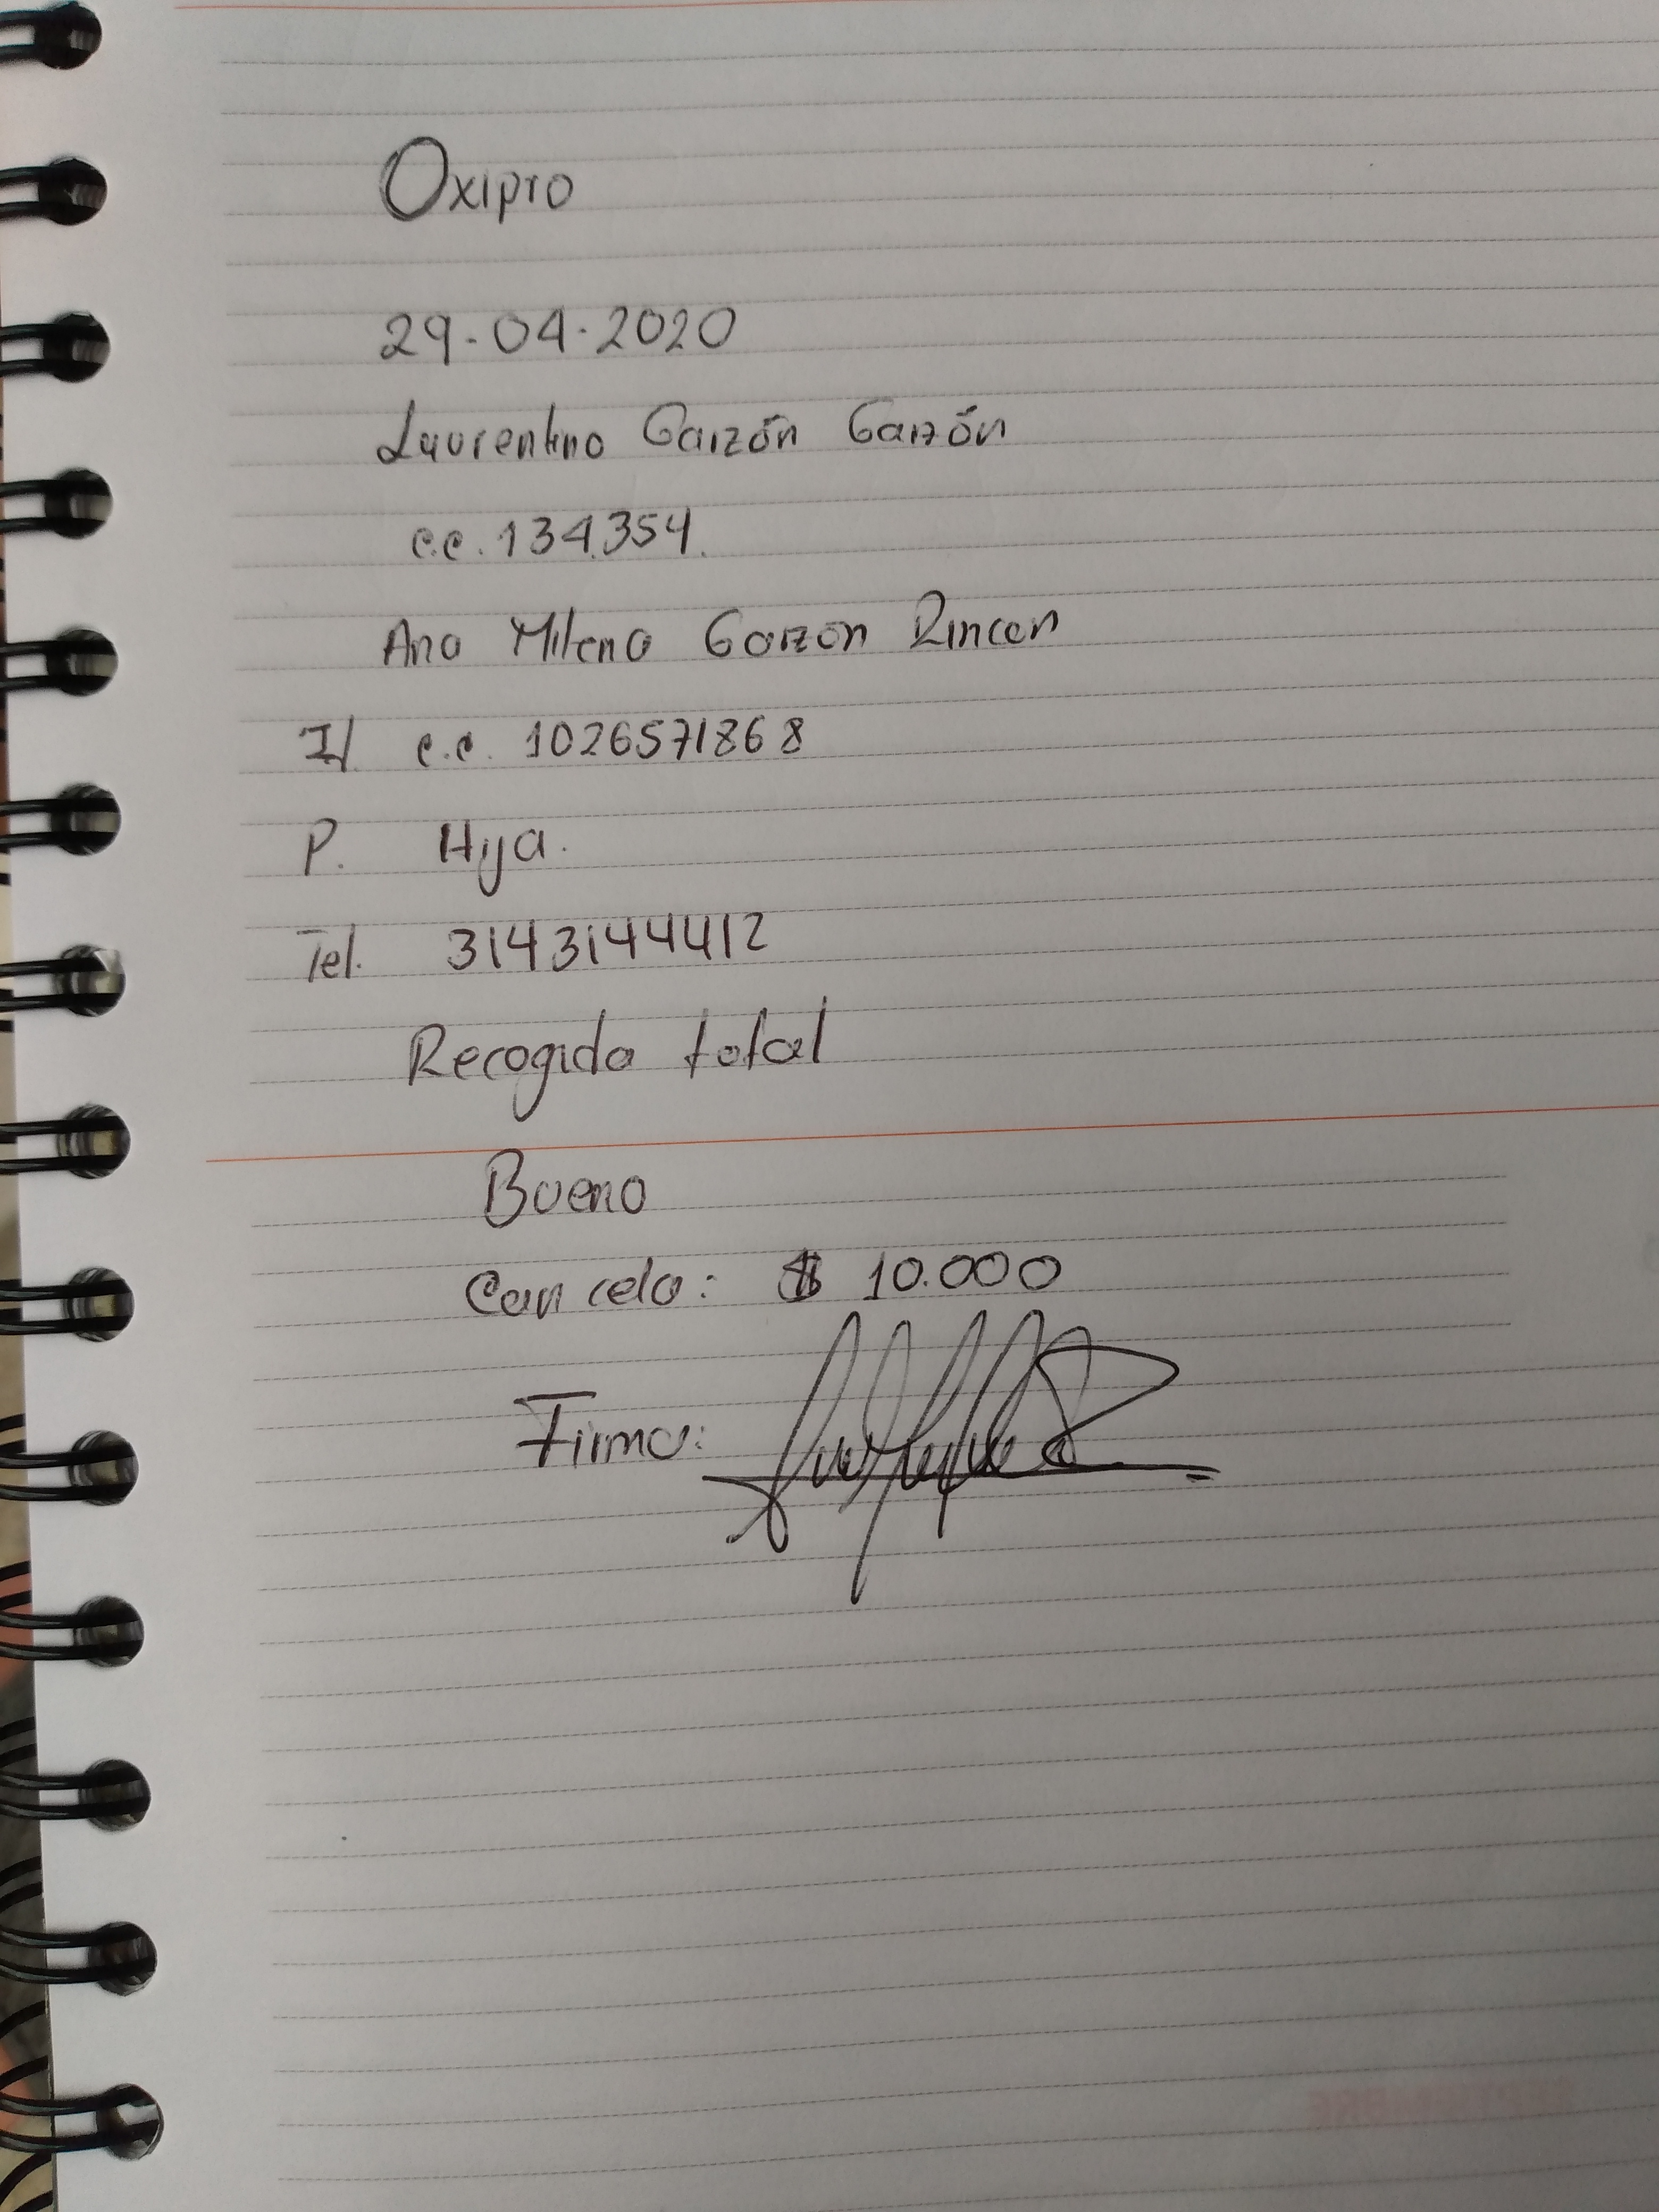 Oxipro
29-04-2020
Laurentino Garzón Garzón
c.c. 134.354.
Ana Milena Garzon Rincon
c.c. 1026571868
P. Hija.
Tel. 3143144412
Recogida total
Bueno
Cancelo: $ 10.000
Firma: